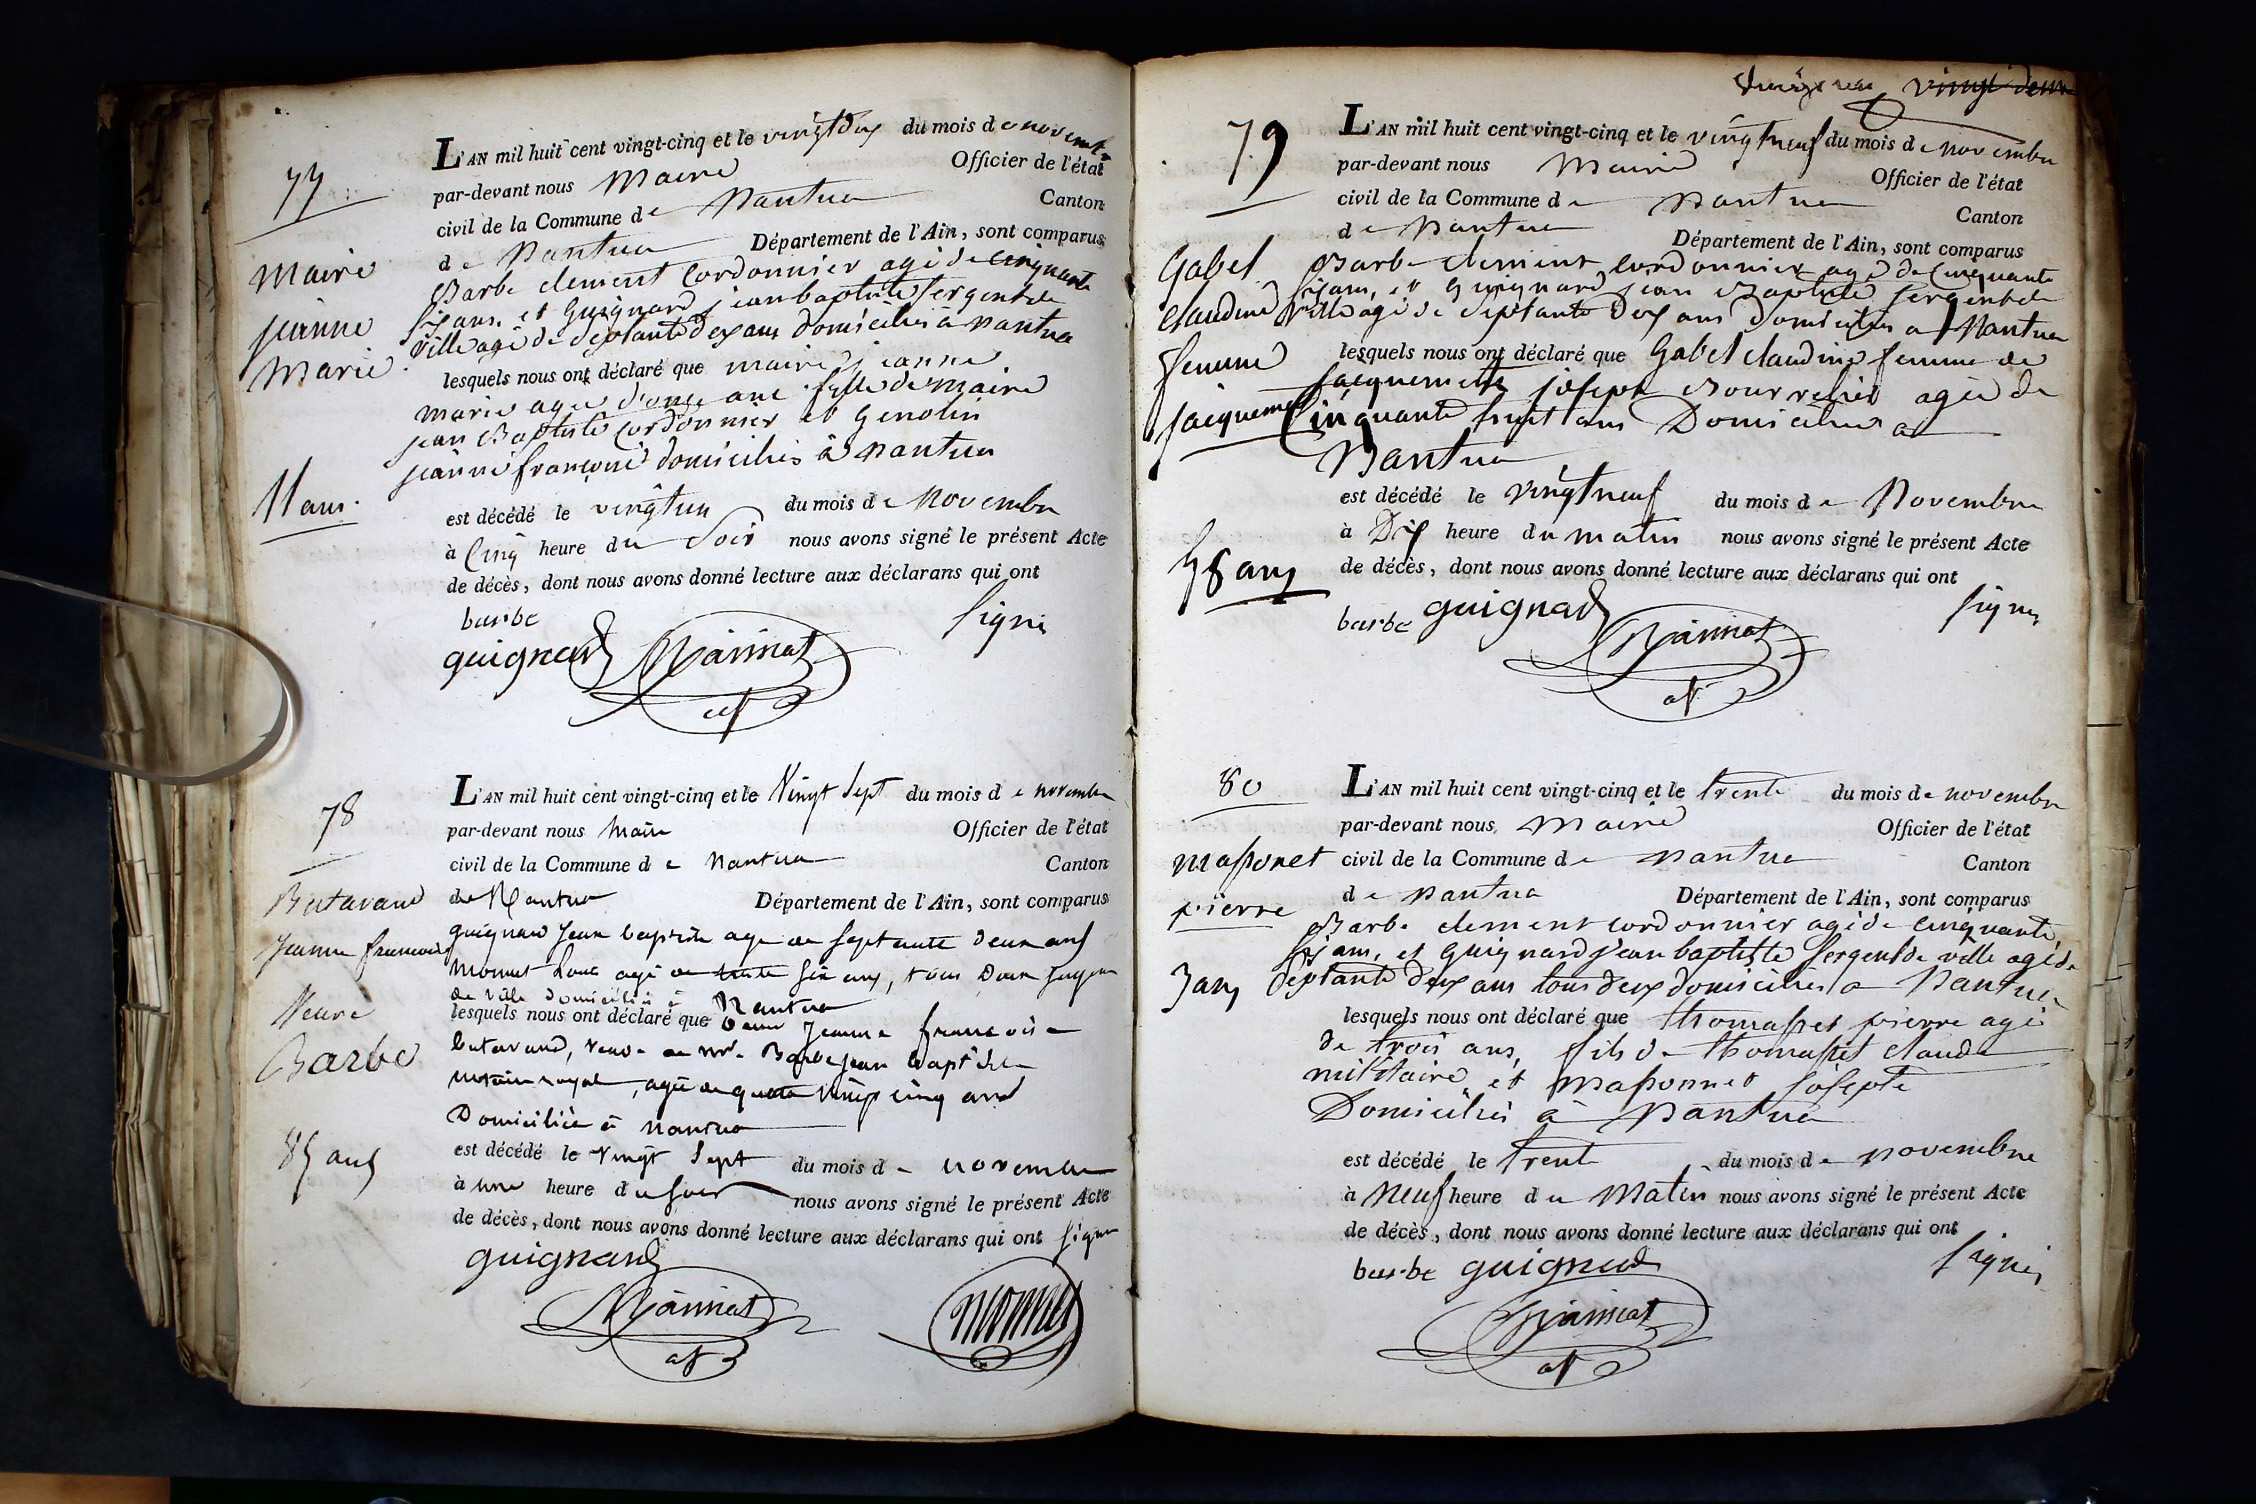 77
maire
jeanne
Marie
11 ans
L'AN mil huit cent vingt-cinq et le vingtdeux du mois de novembre
par-devant nous Maire Officier de l'état
civil de la Commune de Nantua Canton
de Nantua Département de l'Ain, sont comparus
Barbe clement Cordonnier agé de cinquante
six ans, et Guignard jean baptiste Sergent de
ville agé de septante deux ans domiciliés a nantua
lesquels nous ont déclaré que maire jeanne
marie agée d'onze ans fille de maire
jean Baptiste cordonnier et Genolin
jeanne françoise domiciliés à Nantua
est décédé le vingtun du mois de Novembre
à Cinq heure du Soir nous avons signé le présent Acte
de décès, dont nous avons donné lecture aux déclarans qui ont
barbe Signé
guignard
78
Butavand
Jeanne francoise
Veuve
Barbe
85 ans
L'AN mil huit cent vingt-cinq et le Vingt Sept du mois de novembre
par-devant nous Maire Officier de l'état
civil de la Commune de Nantua Canton
de Nantua Département de l'Ain, sont comparus
guignard Jean baptiste agé de septante deux ans
Monnet Louis agé de trente six ans, tous Deux Sergens
de ville domiciliés à Nantua
lesquels nous ont déclaré que Dame Jeanne francoise
butavand, veuve de Mr. Barbe jean baptiste
notaire royal, agée de quatre vingt cinq ans
Domiciliée à Nantua
est décédé le Vingt Sept du mois de novembre
à une heure du soir nous avons signé le présent Acte
de décès, dont nous avons donné lecture aux déclarans qui ont signé
guignard
monnet
vingt deux
79
Gabel
claudine
femme
jacquemet
58 ans
L'AN mil huit cent vingt-cinq et le vingtneuf du mois de novembre
par-devant nous Maire Officier de l'état
civil de la Commune de Nantua Canton
de Nantua Département de l'Ain, sont comparus
Barbe clement cordonnier agé de Cinquante
six ans, et guignard jean Baptiste Sergent de
ville agé de septante deux ans domiciliés a Nantua
lesquels nous ont déclaré que Gabel claudine femme de
jacquemet joseph Bourrelier agée de
Cinquante huit ans Domiciliés a
Nantua
est décédé le vingtneuf du mois de Novembre
à Dix heure du matin nous avons signé le présent Acte
de décès, dont nous avons donné lecture aux déclarans qui ont
barbe guignard signé
80
massonet
pierre
3 ans
L'AN mil huit cent vingt-cinq et le trente du mois de novembre
par-devant nous Maire Officier de l'état
civil de la Commune de Nantua Canton
de Nantua Département de l'Ain, sont comparus
Barbe clement cordonnier agé de cinquante
six ans, et Guignard jean baptiste Sergent de ville agé de
septante deux ans tous deux domiciliés a Nantua
lesquels nous ont déclaré que thomasset pierre agé
de trois ans, fils de thomasset claude
militaire et Massonnet josepte
Domiciliés à Nantua
est décédé le trente du mois de novembre
à Neuf heure du Matin nous avons signé le présent Acte
de décès, dont nous avons donné lecture aux déclarans qui ont
barbe guignard signé